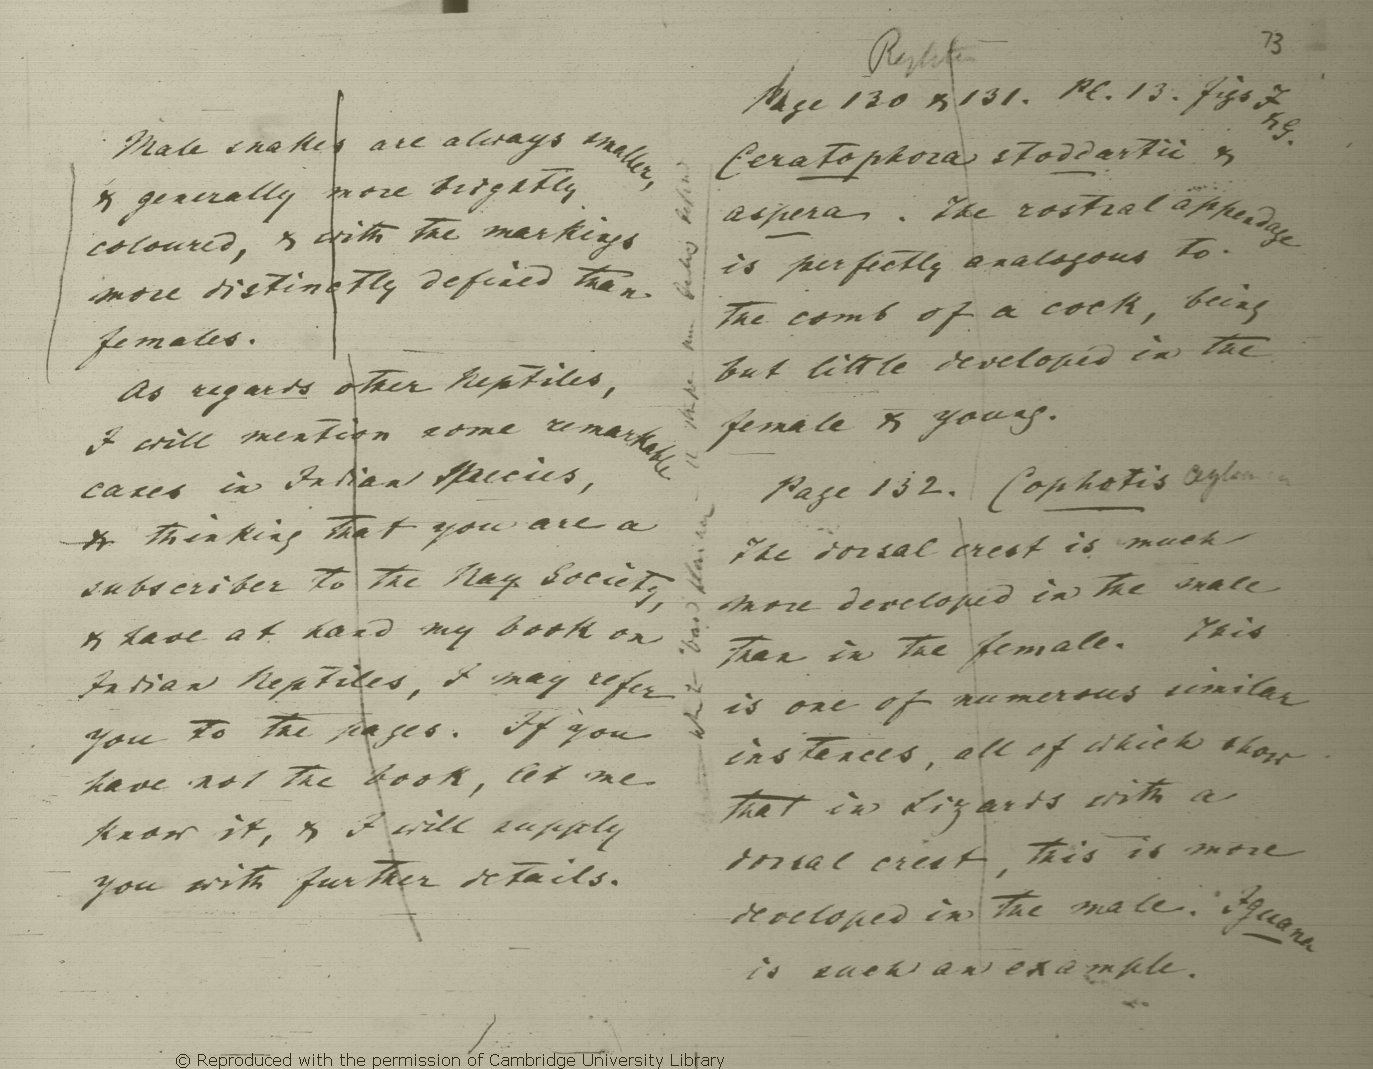 Male snakes are always smaller,
& generally more brightly
coloured, & with the markings
more distinctly defined than
females.
As regards other Reptiles,
I will mention some remarkable
cases in Indian Species,
& thinking that you are a
subscriber to the Ray Society,
& have at hand my book on
Indian Reptiles, I may refer
you to the pages. If you
have not the book, let me
know it, & I will supply
you with further details.
73
Reptiles
Page 130 & 131. Pl. 13. figs F
& G.
Ceratophora stoddartii &
aspera. The rostral appendage
is perfectly analogous to
the comb of a cock, being
but little developed in the
female & young.
Page 132. Cophotis Ceylon
The dorsal crest is much
more developed in the male
than in the female. This
is one of numerous similar
instances, all of which show
that in Lizards with a
dorsal crest, this is more
developed in the male. Iguana
is such an example.
© Reproduced with the permission of Cambridge University Library